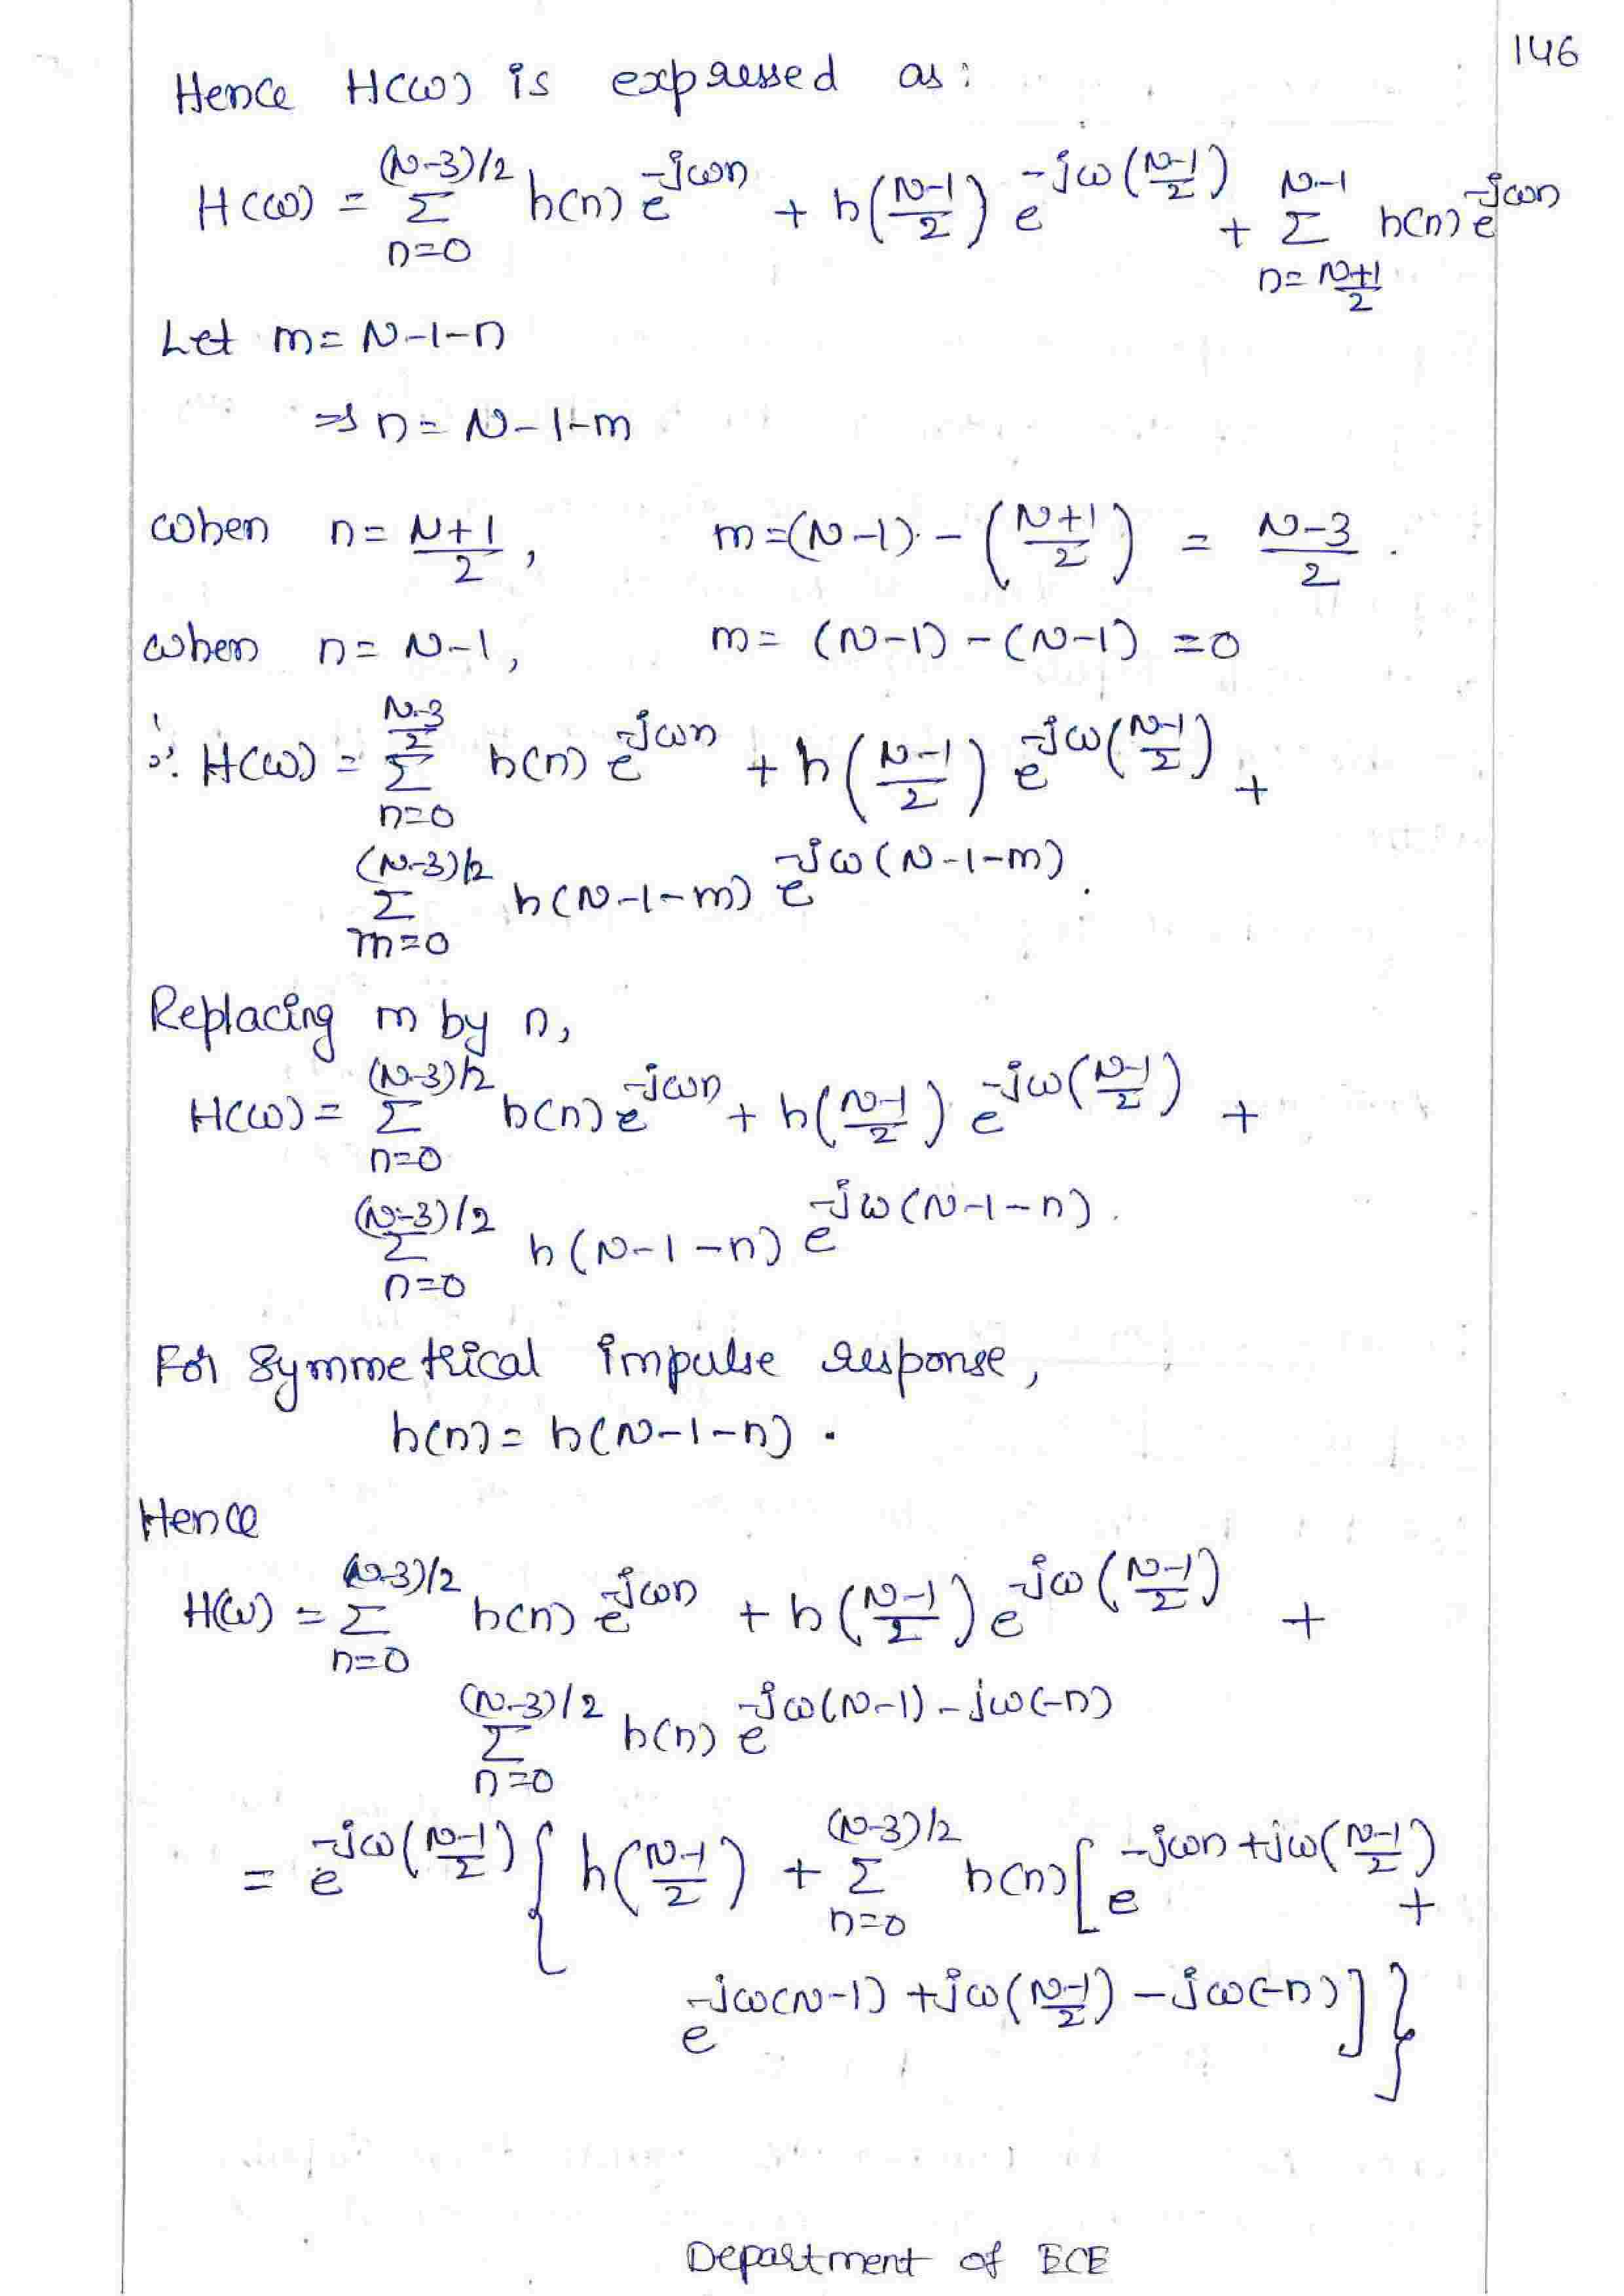 146
Hence H(ω) is expressed as:
H(ω) = Σ_{n=0}^{(N-3)/2} h(n) e^{-jωn} + h((N-1)/2) e^{-jω((N-1)/2)} + Σ_{n=(N+1)/2}^{N-1} h(n) e^{-jωn}
Let m = N-1-n
⇒ n = N-1-m
when n = (N+1)/2, m = (N-1) - ((N+1)/2) = (N-3)/2.
when n = N-1, m = (N-1) - (N-1) = 0
∴ H(ω) = Σ_{n=0}^{(N-3)/2} h(n) e^{-jωn} + h((N-1)/2) e^{-jω((N-1)/2)} +
Σ_{m=0}^{(N-3)/2} h(N-1-m) e^{-jω(N-1-m)}.
Replacing m by n,
H(ω) = Σ_{n=0}^{(N-3)/2} h(n) e^{-jωn} + h((N-1)/2) e^{-jω((N-1)/2)} +
Σ_{n=0}^{(N-3)/2} h(N-1-n) e^{-jω(N-1-n)}.
For Symmetrical impulse response,
h(n) = h(N-1-n).
Hence
H(ω) = Σ_{n=0}^{(N-3)/2} h(n) e^{-jωn} + h((N-1)/2) e^{-jω((N-1)/2)} +
Σ_{n=0}^{(N-3)/2} h(n) e^{-jω(N-1)-jω(-n)}
= e^{-jω((N-1)/2)} { h((N-1)/2) + Σ_{n=0}^{(N-3)/2} h(n) [ e^{-jωn+jω((N-1)/2)} +
e^{-jω(N-1)+jω((N-1)/2)-jω(-n)} ] }
Department of ECE